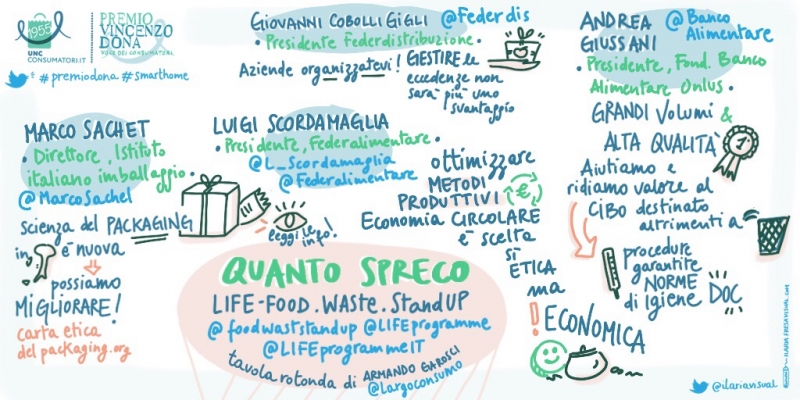 1955
UNC
CONSUMATORI.IT
PREMIO
VINCENZO
DONA
VOCE DEI CONSUMATORI
# premiodona # smarthome
GIOVANNI COBOLLI GIGLI @Federdis
• Presidente Federdistribuzione •
Aziende organizzatevi! GESTIRE le
eccedenze non
sarà più uno
svantaggio
ANDREA
GIUSSANI
@Banco
Alimentare
• Presidente, Fond. Banco
Alimentare Onlus •
GRANDI VOLUMI &
ALTA QUALITÀ
1
Aiutiamo e
ridiamo valore al
CIBO destinato
altrimenti a
procedure
garantite
NORME
di Igiene DOC
MARCO SACHET
• Direttore, Istituto
italiano imballaggio •
@MarcoSachel
scienza del PACKAGING
in è nuova
possiamo
MIGLIORARE!
carta etica
del packaging.org
LUIGI SCORDAMAGLIA
• Presidente, Federalimentare •
@L_Scordamaglia
@Federalimentare
leggi le
info!
ottimizzare
METODI
PRODUTTIVI
€
Economia CIRCOLARE
è scelta
sì
ETICA
ma
! ECONOMICA
QUANTO SPRECO
LIFE-FOOD.WASTE.StandUP
@foodwaststandup @LIFEprogramme
@LIFEprogrammeIT
tavola rotonda di ARMANDO GAROSCI
@Largoconsumo
@ilariavisual